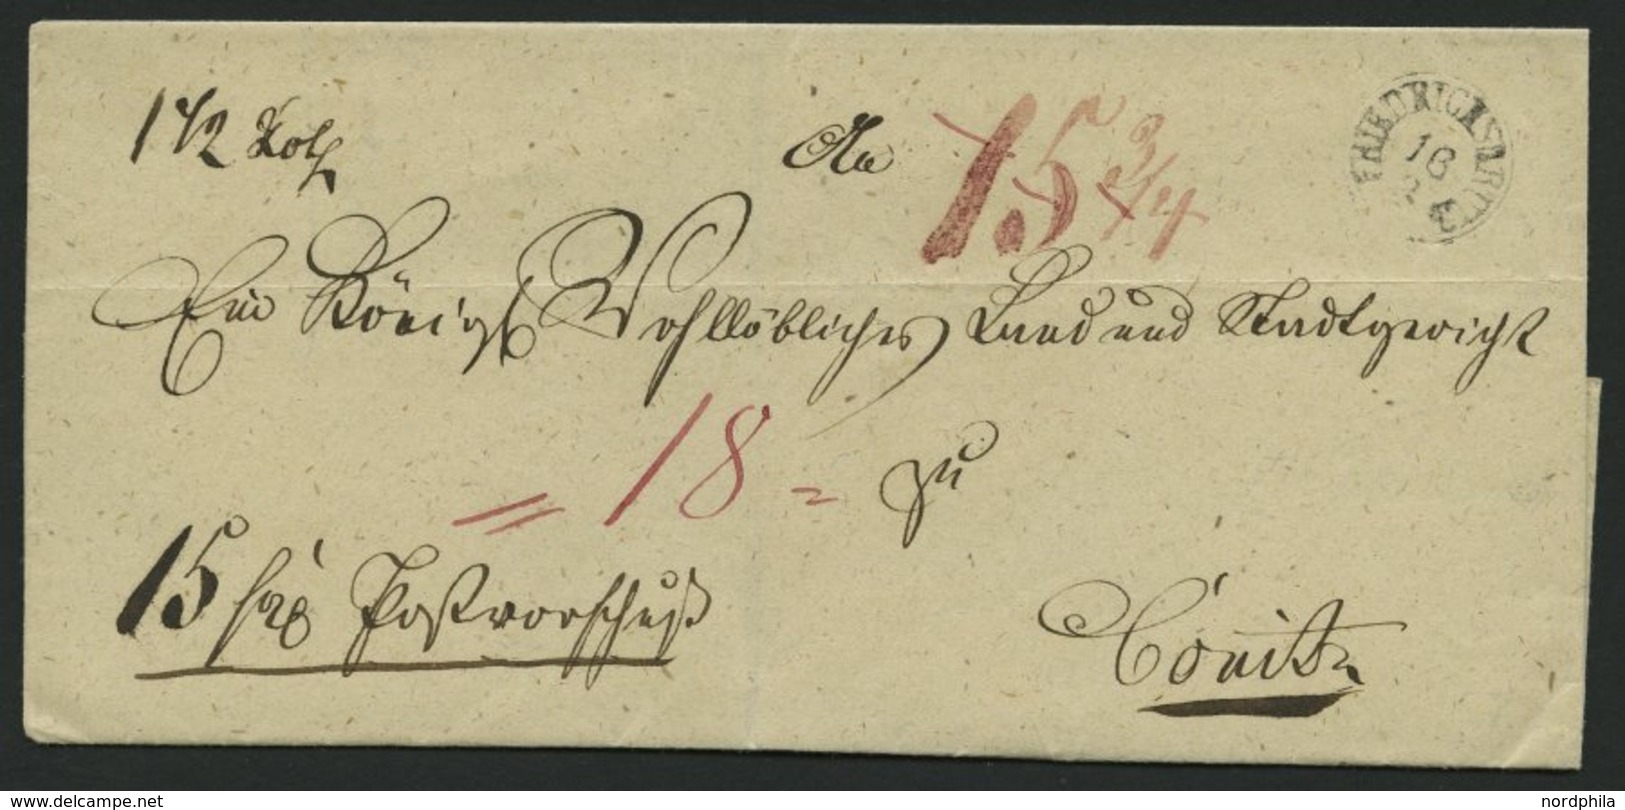 1 1/2 Loth
An
15 3/4
FRIEDRICHSBRUCH
16
Ein Königl Wohllöbliches Land und Stadtgericht
= 18 =
zu
15 sgr Postvorschuß
Conitz
nordphila